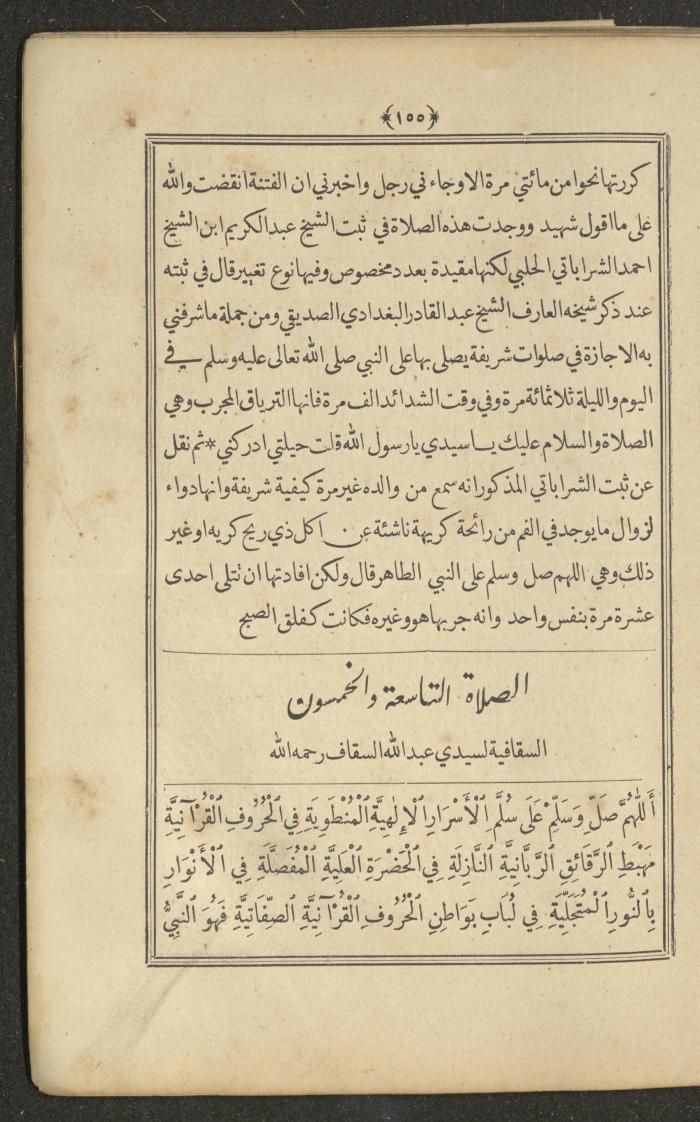 ﴿١٥٥﴾
كررتها نحوا من مائتي مرة الا وجاء في رجل واخبرني ان الفتنة انقضت والله
على ما اقول شهيد ووجدت هذه الصلاة في ثبت الشيخ عبد الكريم ابن الشيخ
احمد الشراباتي الحلبي لكنها مقيدة بعدد مخصوص وفيها نوع تغيير قال في ثبته
عند ذكر شيخه العارف الشيخ عبد القادر البغدادي الصديقي ومن جملة ما شرفني
به الاجازة في صلوات شريفة يصلى بها على النبي صلى الله تعالى عليه وسلم في
اليوم والليلة ثلاثمائة مرة وفي وقت الشدائد الف مرة فانها الترياق المجرب وهي
الصلاة والسلام عليك يا سيدي يا رسول الله قلت حيلتي ادركني * ثم نقل
عن ثبت الشراباتي المذكور انه سمع من والده غير مرة كيفية شريفة وانها دواء
لزوال ما يوجد في الفم من رائحة كريهة ناشئة عن اكل ذي ريح كريه او غير
ذلك وهي اللهم صل وسلم على النبي الطاهر قال ولكن افادتها ان تتلى احدى
عشرة مرة بنفس واحد وانه جربها هو وغيره فكانت كفلق الصبح
الصلاة التاسعة والخمسون
السقافية لسيدي عبد الله السقاف رحمه الله
أَللّٰهُمَّ صَلِّ وَسَلِّمْ عَلَى سُلَّمِ ٱلْأَسْرَارِ ٱلْإِلٰهِيَّةِ ٱلْمُنْطَوِيَةِ فِي ٱلْحُرُوفِ ٱلْقُرْآنِيَّةِ
مَهْبِطِ ٱلرَّقَائِقِ ٱلرَّبَّانِيَّةِ ٱلنَّازِلَةِ فِي ٱلْحَضْرَةِ ٱلْعَلِيَّةِ ٱلْمُفَصَّلَةِ فِي ٱلْأَنْوَارِ
بِٱلنُّورِ ٱلْمُتَجَلِّيَةِ فِي لُبَابِ بَوَاطِنِ ٱلْحُرُوفِ ٱلْقُرْآنِيَّةِ ٱلصِّفَاتِيَّةِ فَهُوَ ٱلنَّبِيُّ